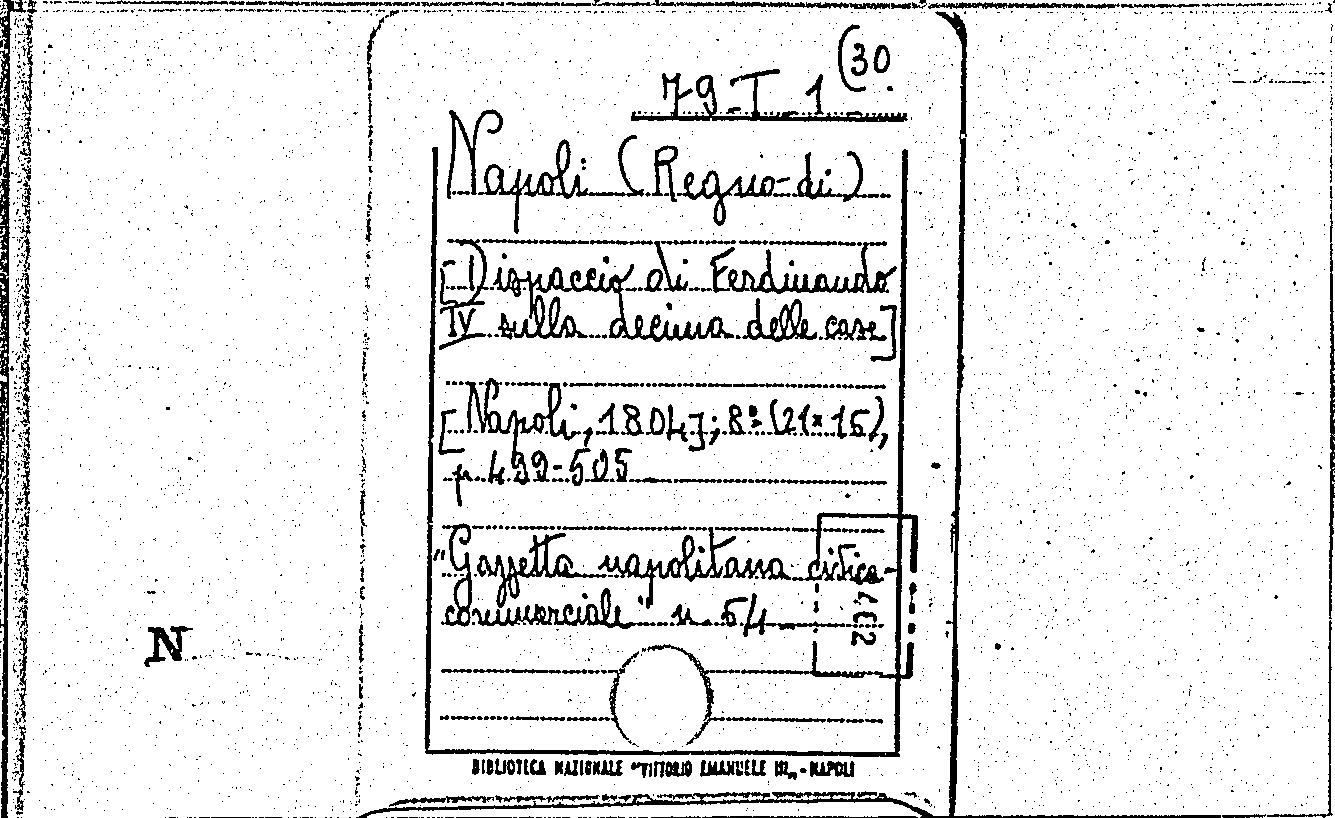 79-T 1 (30.
Napoli (Regno-di)
[Dispaccio di Ferdinando
IV sulla decima delle case]
[Napoli, 1804]; 8º (21×15),
p. 499-505
"Gazzetta napolitana civica-
commerciale" n. 54
N
BIBLIOTECA NAZIONALE "VITTORIO EMANUELE III" - NAPOLI